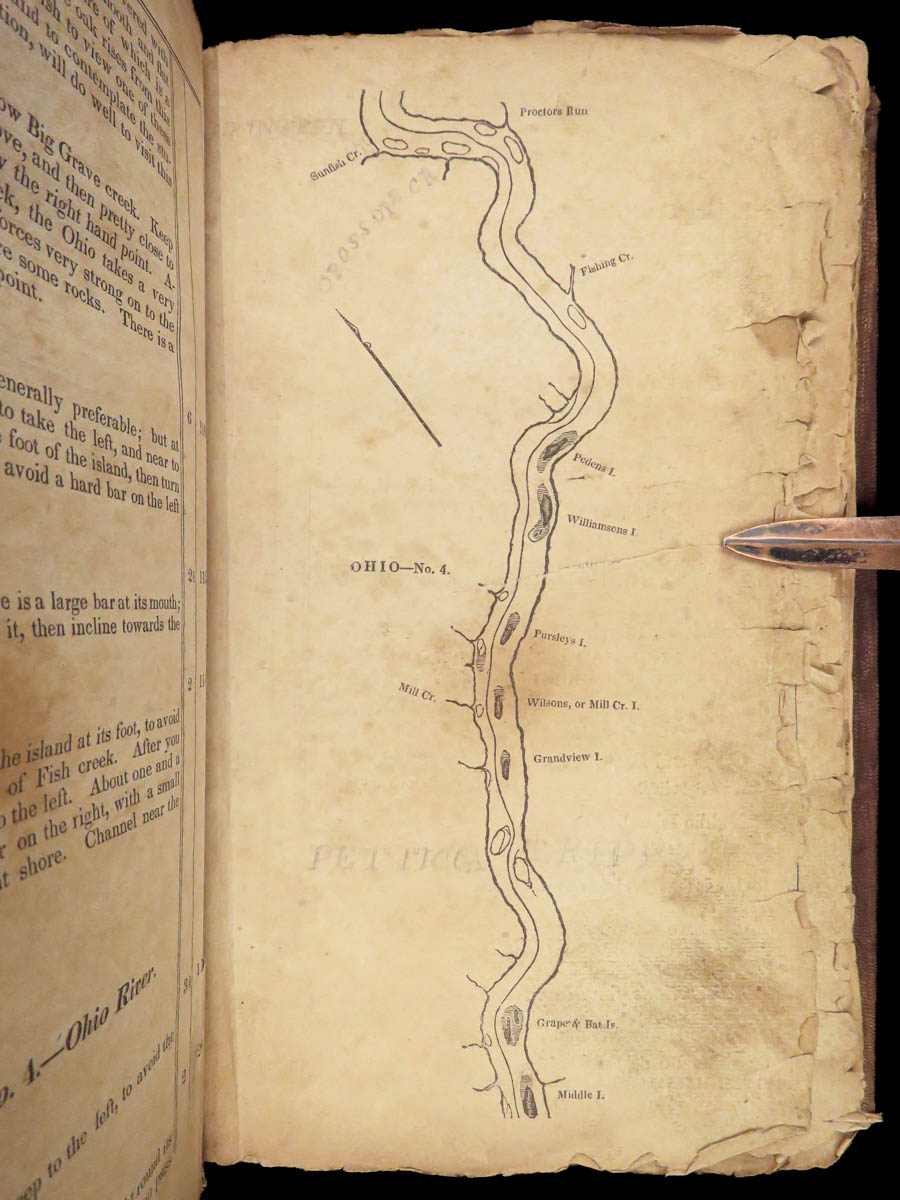 vered with
mooth and flat
re of which is a
oak rises from this
ish to view one of these
and to contemplate the stu-
tion, will do well to visit this
ow Big Grave creek. Keep
ove, and then pretty close to
y the right hand point. A-
ek, the Ohio takes a very
forces very strong on to the
re some rocks. There is a
point.
enerally preferable; but at
to take the left, and near to
foot of the island, then turn
avoid a hard bar on the left
6
e is a large bar at its mouth;
it, then incline towards the
2
the island at its foot, to avoid
of Fish creek. After you
o the left. About one and a
r on the right, with a small
t shore. Channel near the
4.—Ohio River.
2
eep to the left, to avoid the
round its
Proctors Run
Sunfish Cr.
OPOSSOPS CR
Fishing Cr.
Pedens I.
Williamsons I.
OHIO—No. 4.
Pursleys I.
Mill Cr.
Wilsons, or Mill Cr. I.
Grandview I.
Grape & Bat Is.
Middle I.